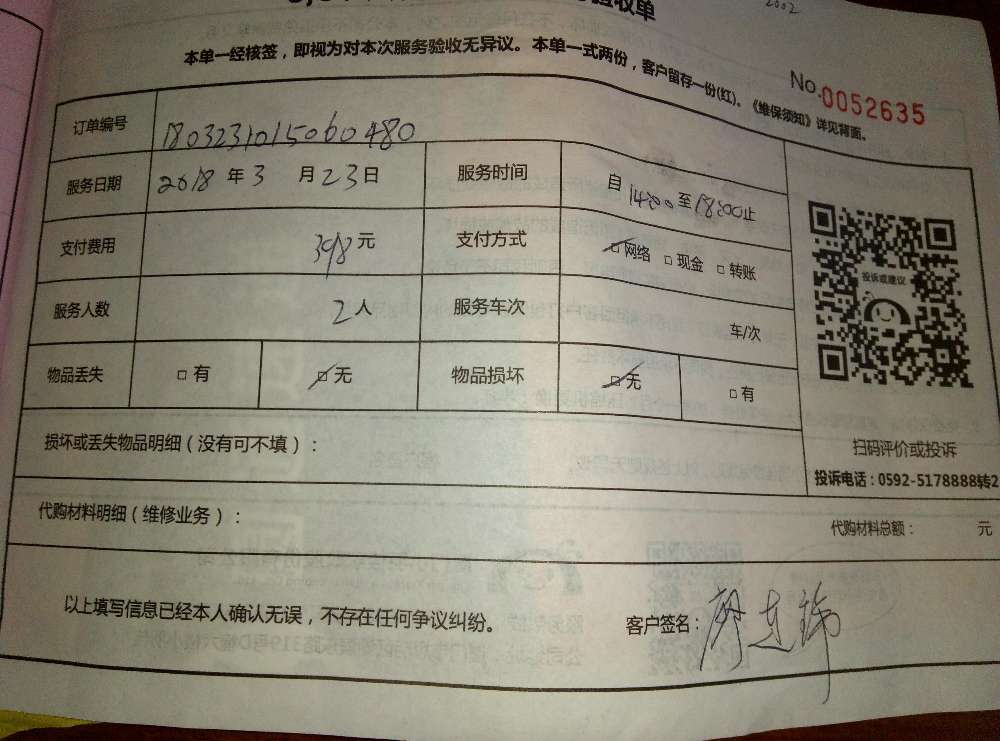 验收单
2002
本单一经核签，即视为对本次服务验收无异议。本单一式两份，客户留存一份(红)。《维保须知》详见背面。
No.0052635
订单编号 1803231015060480
服务日期 2018 年 3 月 23 日 服务时间 自 14:00 至 18:00 止
支付费用 398 元 支付方式 ☑ 网络 □ 现金 □ 转账
服务人数 2 人 服务车次 车/次
物品丢失 □ 有 ☑ 无 物品损坏 ☑ 无 □ 有
投诉或建议
损坏或丢失物品明细（没有可不填）：
扫码评价或投诉
投诉电话：0592-5178888转2
代购材料明细（维修业务）：
代购材料总额： 元
以上填写信息已经本人确认无误，不存在任何争议纠纷。
客户签名：